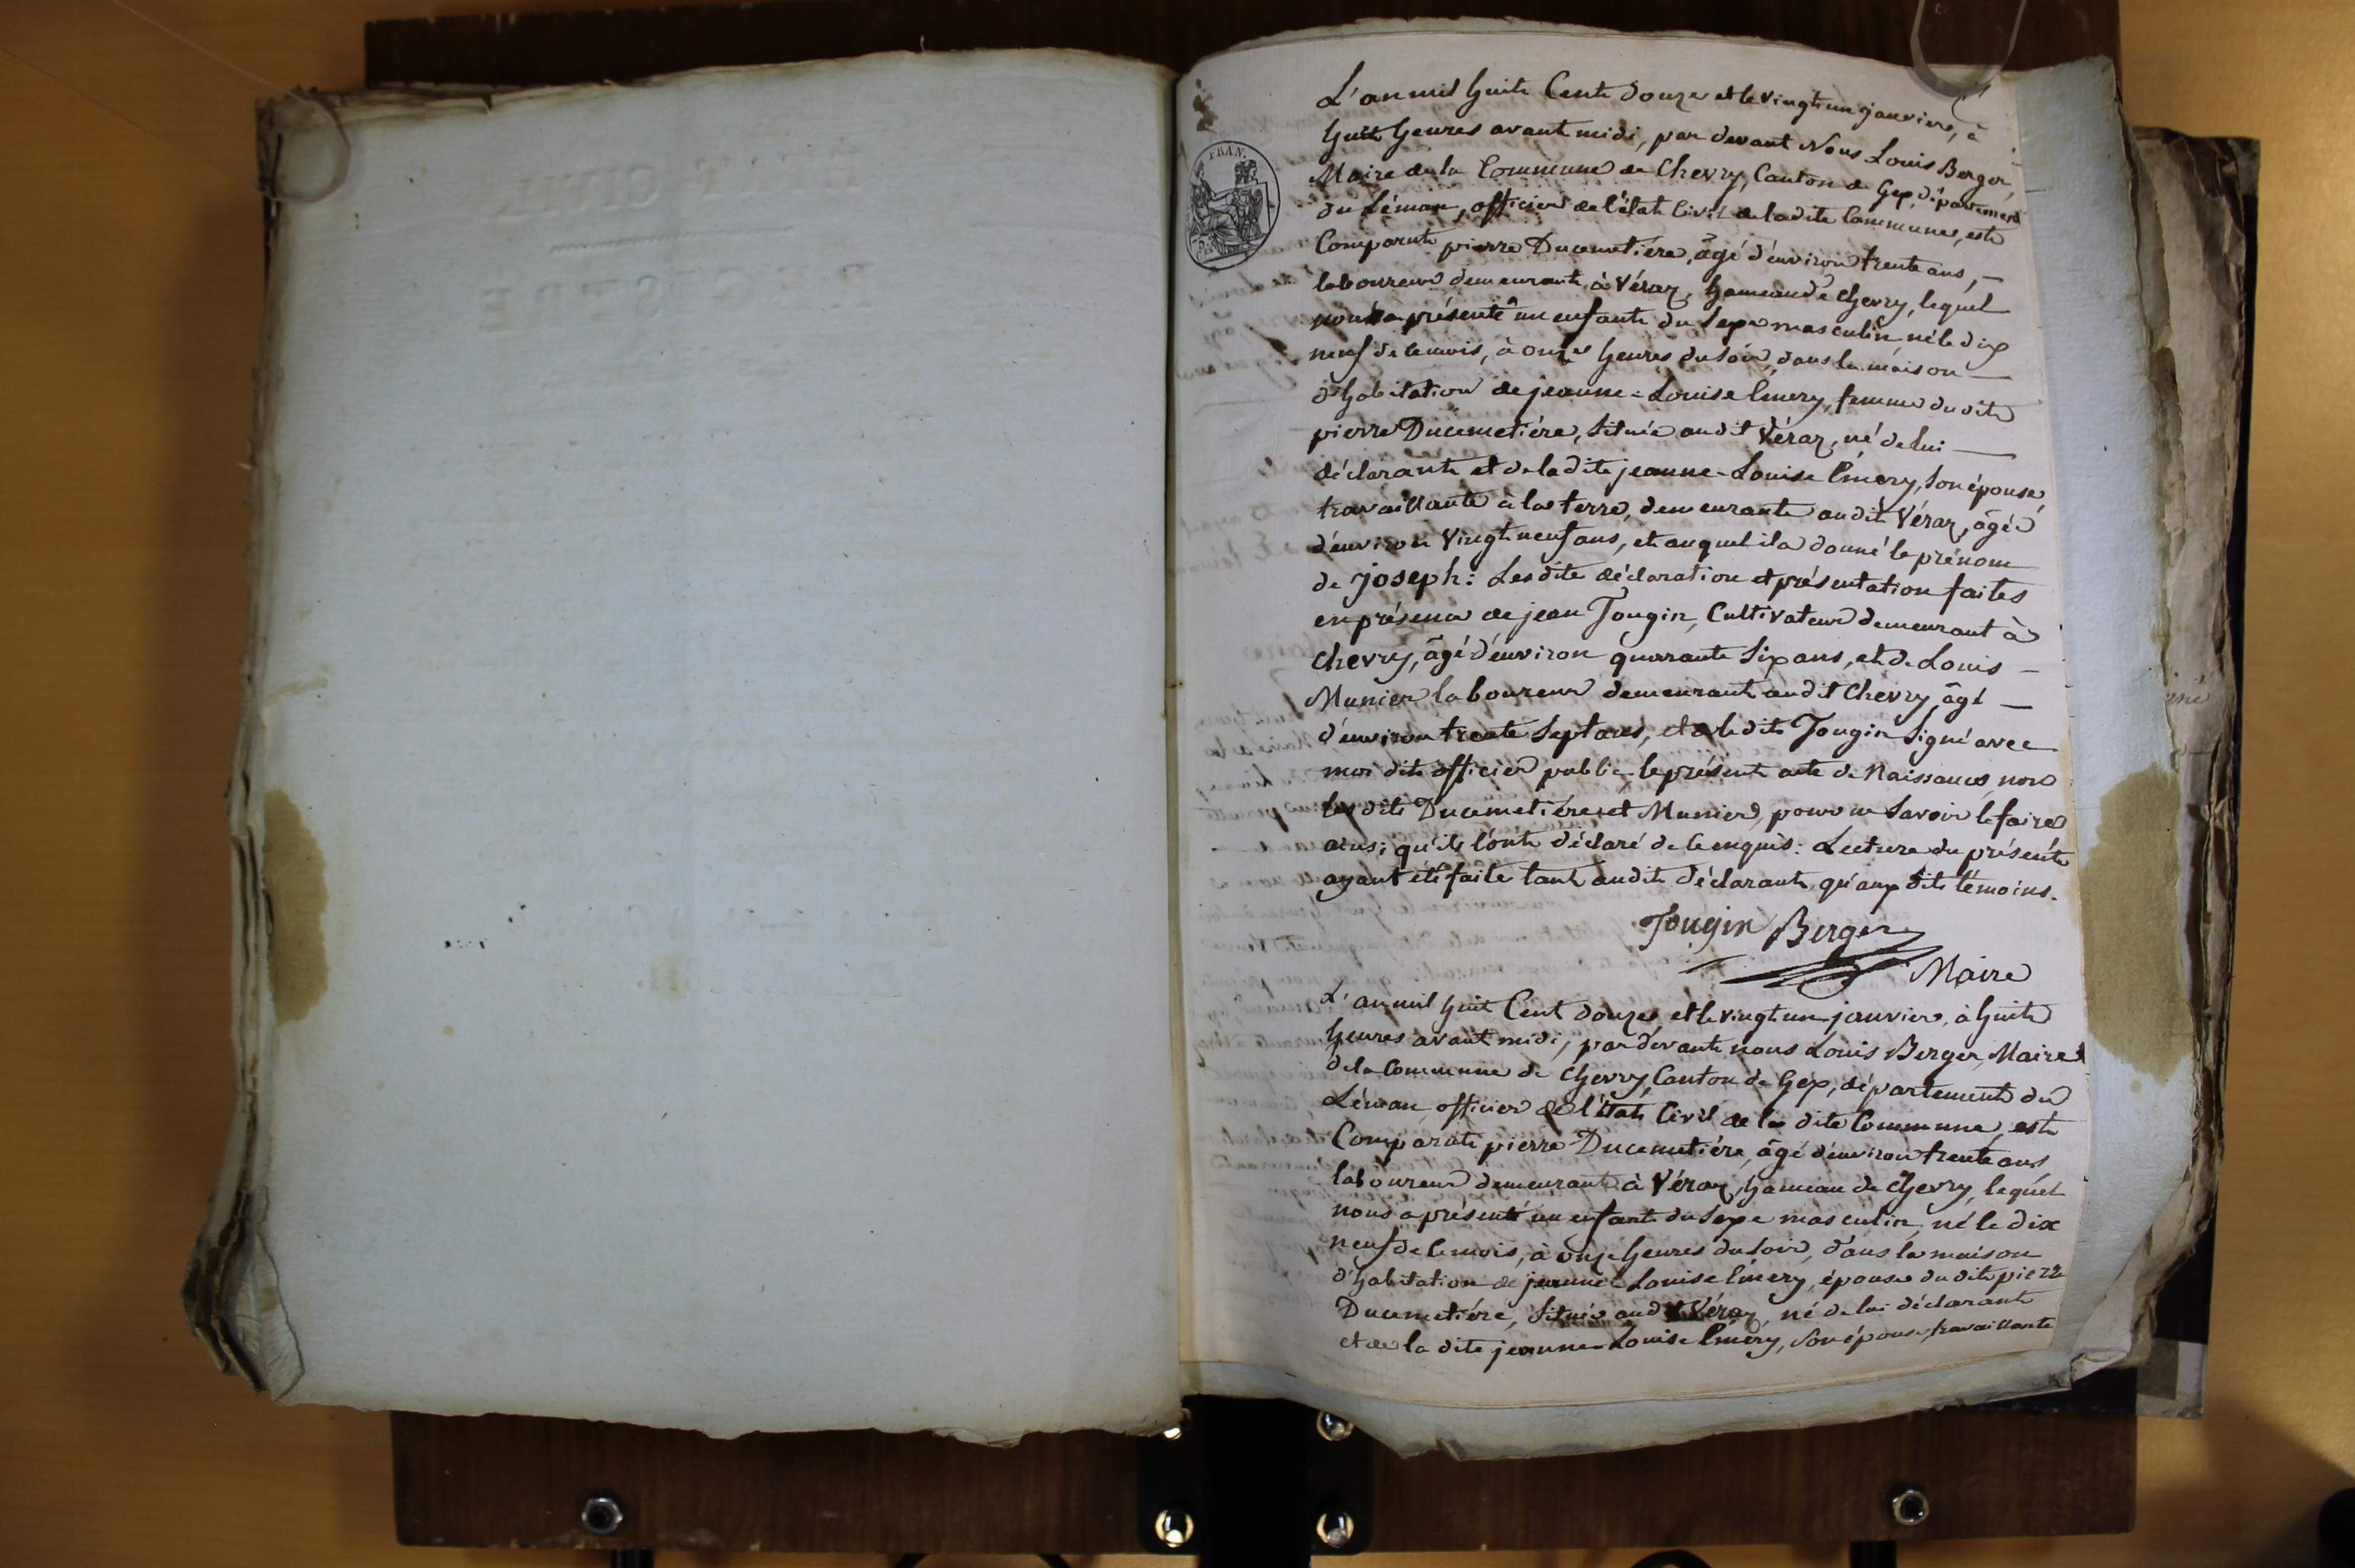 L'an mil huit Cent douze et le vingt un janvier, à
huit heures avant midi, par devant Nous Louis Berger,
Maire de la Commune de Chevry, Canton de Gex, département
du Léman, officier de l'état Civil de ladite Commune, est
Comparut pierre Ducemetiére, âgé d'environ trente ans, —
laboureur demeurant à Véraz, hameau de Chevry, lequel
nous a présenté un enfant du Sexe masculin, né le dix
neuf de Ce mois, à onze heures du Soir, dans la maison —
d'habitation de jeanne-Louise Émery, femme du dit
pierre Ducemetiére, Située au dit Véraz, né de lui —
déclarant et de la dite jeanne-Louise Émery, Son épouse,
travaillante à la terre, demeurante au dit Véraz, âgée
d'environ Vingt neuf ans, et auquel il a donné le prénom
de joseph: Les dite déclaration et présentation faites
en présence de jean Tougin, Cultivateur demeurant à
Chevry, âgé d'environ quarante Six ans, et de Louis —
Munier laboureur demeurant au dit Chevry, âgé —
d'environ trente Sept ans, et a le dit Tougin Signé avec
moi dit officier public le présent acte de Naissance, non
les dits Ducemetiére et Munier, pour ne Savoir le faire
ainsi qu'ils l'ont déclaré de Ce enquis: Lecture du présent
ayant été faite tant au dit déclarant, qu'aux dits témoins.
Tougin Berger
Maire
L'an mil huit Cent douze et le vingt un janvier, à huit
heures avant midi, par devant nous Louis Berger, Maire
de la Commune de Chevry, Canton de Gex, département du
Léman, officier de l'état Civil de la dite Commune, est
Comparut pierre Ducemetiére, âgé d'environ trente ans,
laboureur demeurant à Véraz, hameau de Chevry, lequel
nous a présenté un enfant du Sexe masculin, né le dix
neuf de Ce mois, à onze heures du Soir, dans la maison
d'habitation de jeanne Louise Émery, épouse du dit pierre
Ducemetiére, Située au dit Véraz, né de lui déclarant
et de la dite jeanne-Louise Émery, Son épouse, travaillante
FRAN.